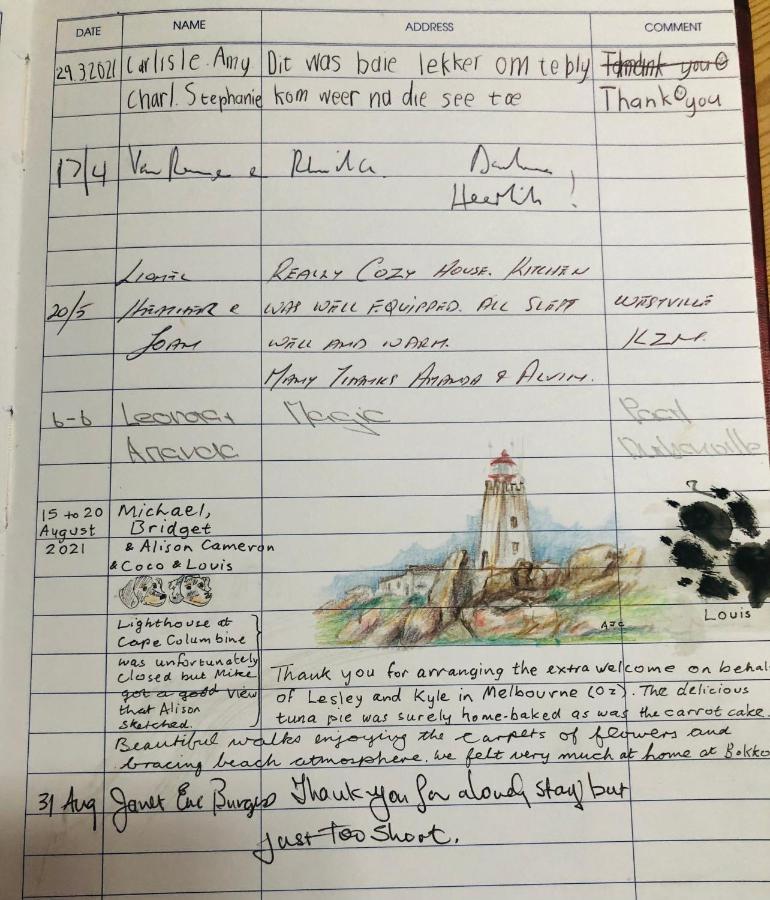 DATE NAME ADDRESS COMMENT
29.3.2021 Carlisle. Amy Dit was baie lekker om te bly Thank you
Charl. Stephanie kom weer na die see toe Thank you
17/4 Van
Heerlik!
Lionel REALLY COZY HOUSE. KITCHEN
20/5 HEATHER & WAS WELL EQUIPPED. ALL SLEPT WESTVILLE
JOAN WELL AND WARM. KZN.
MANY THANKS AMANDA & ALVIN.
6-6 Magic Paarl
Durbanville
15 to 20 Michael,
August Bridget
2021 & Alison Cameron
& Coco & Louis
Louis
Lighthouse at
Cape Columbine
AJC
was unfortunately
closed but Mike
got a good view
that Alison
sketched.
Thank you for arranging the extra welcome on behal
of Lesley and Kyle in Melbourne (Oz). The delicious
tuna pie was surely home-baked as was the carrot cake.
Beautiful walks enjoying the carpets of flowers and
bracing beach atmosphere. We felt very much at home at Bokko
31 Aug Janet Eve Burgess Thank you for a lovely stay but
just too short.